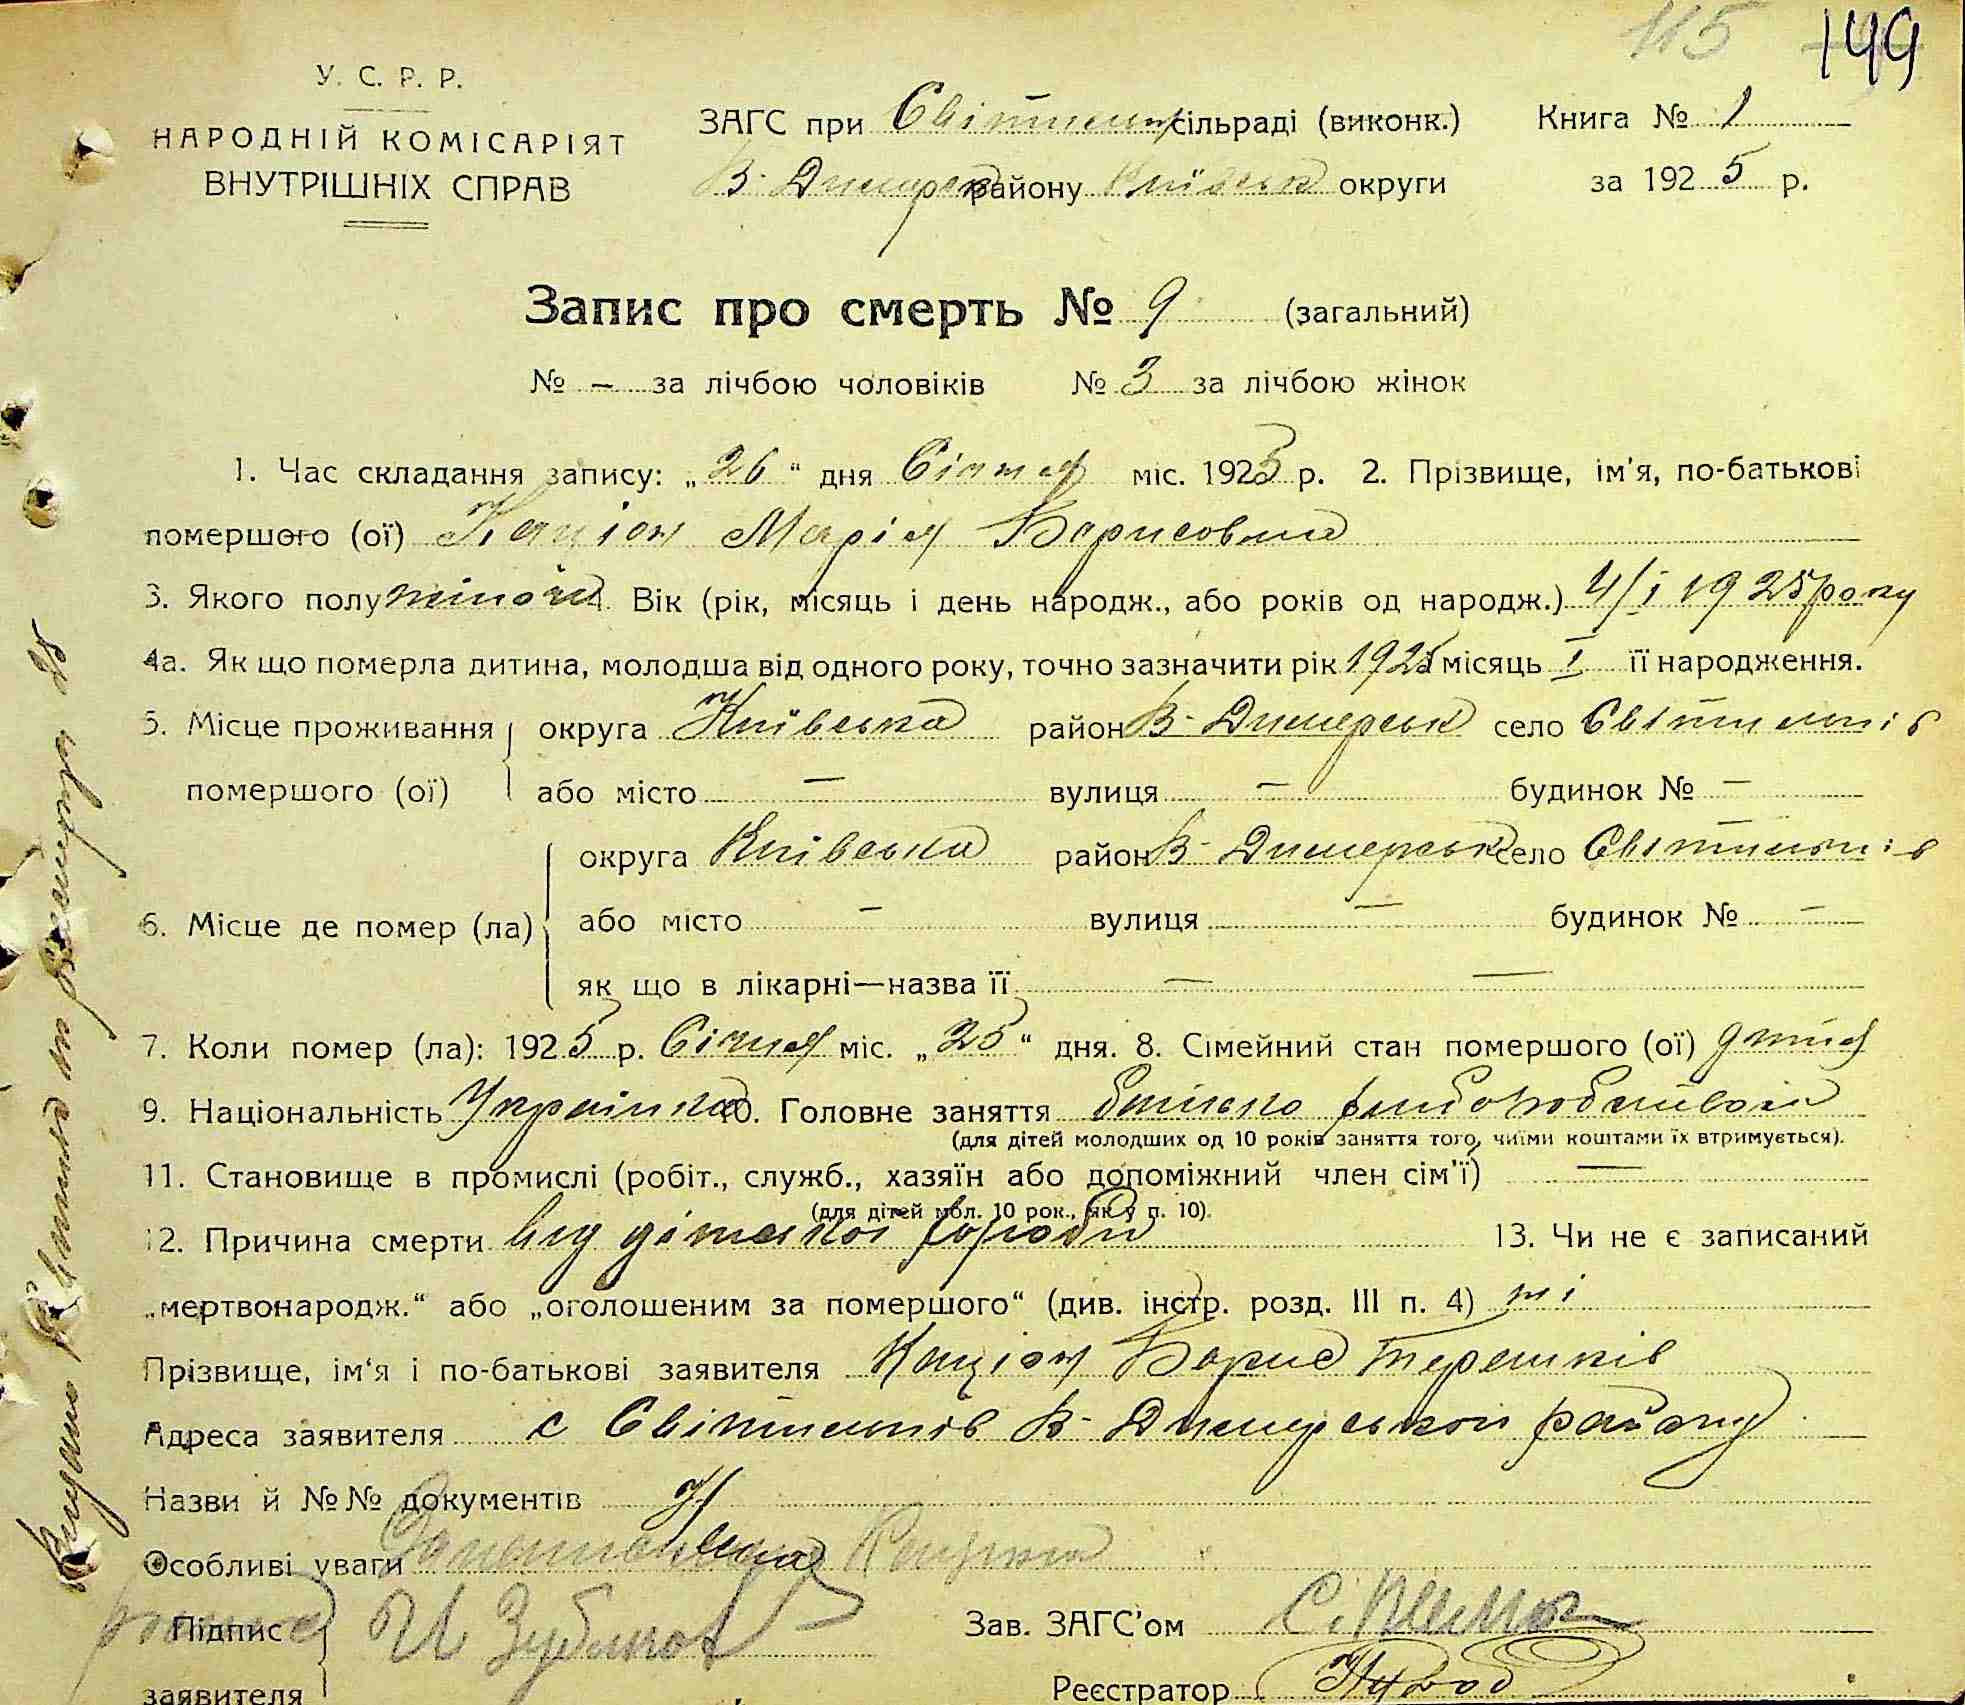 115 149
У. С. Р. Р.
НАРОДНІЙ КОМІСАРІЯТ
ВНУТРІШНІХ СПРАВ
ЗАГС при сільраді (виконк.) Книга № 1
В-Димерськ району Київськ округи за 1925 р.
Запис про смерть № 9 (загальний)
№ — за лічбою чоловіків № 3 за лічбою жінок
1. Час складання запису: „26“ дня Січня міс. 1925 р. 2. Прізвище, ім'я, по-батькові
помершого (ої) Каціон Марія Борисовна
3. Якого полу жіночи Вік (рік, місяць і день народж., або років од народж.) 4/I 1925 року
4а. Як що померла дитина, молодша від одного року, точно зазначити рік 1925 місяць I її народження.
5. Місце проживання округа Київська район В-Димерськ село Світильнів
помершого (ої) або місто — вулиця — будинок № —
округа Київська район В-Димерськ село Світильнів
6. Місце де помер (ла) або місто — вулиця — будинок № —
як що в лікарні—назва її — —
7. Коли помер (ла): 1925 р. Січня міс. „25“ дня. 8. Сімейний стан помершого (ої)
9. Національність Українка 10. Головне заняття
(для дітей молодших од 10 років заняття того, чиїми коштами їх втримується).
11. Становище в промислі (робіт., служб., хазяїн або допоміжний член сім'ї) —
(для дітей мол. 10 рок., як у п. 10).
12. Причина смерти від дітської хороби 13. Чи не є записаний
„мертвонародж.“ або „оголошеним за помершого“ (див. інстр. розд. III п. 4) ні
Прізвище, ім'я і по-батькові заявителя Каціон Борис Терешків
Адреса заявителя с Світильнів В-Димерської району
Назви й №№ документів
Особливі уваги
Підпис Зав. ЗАГС'ом
заявителя Реєстратор